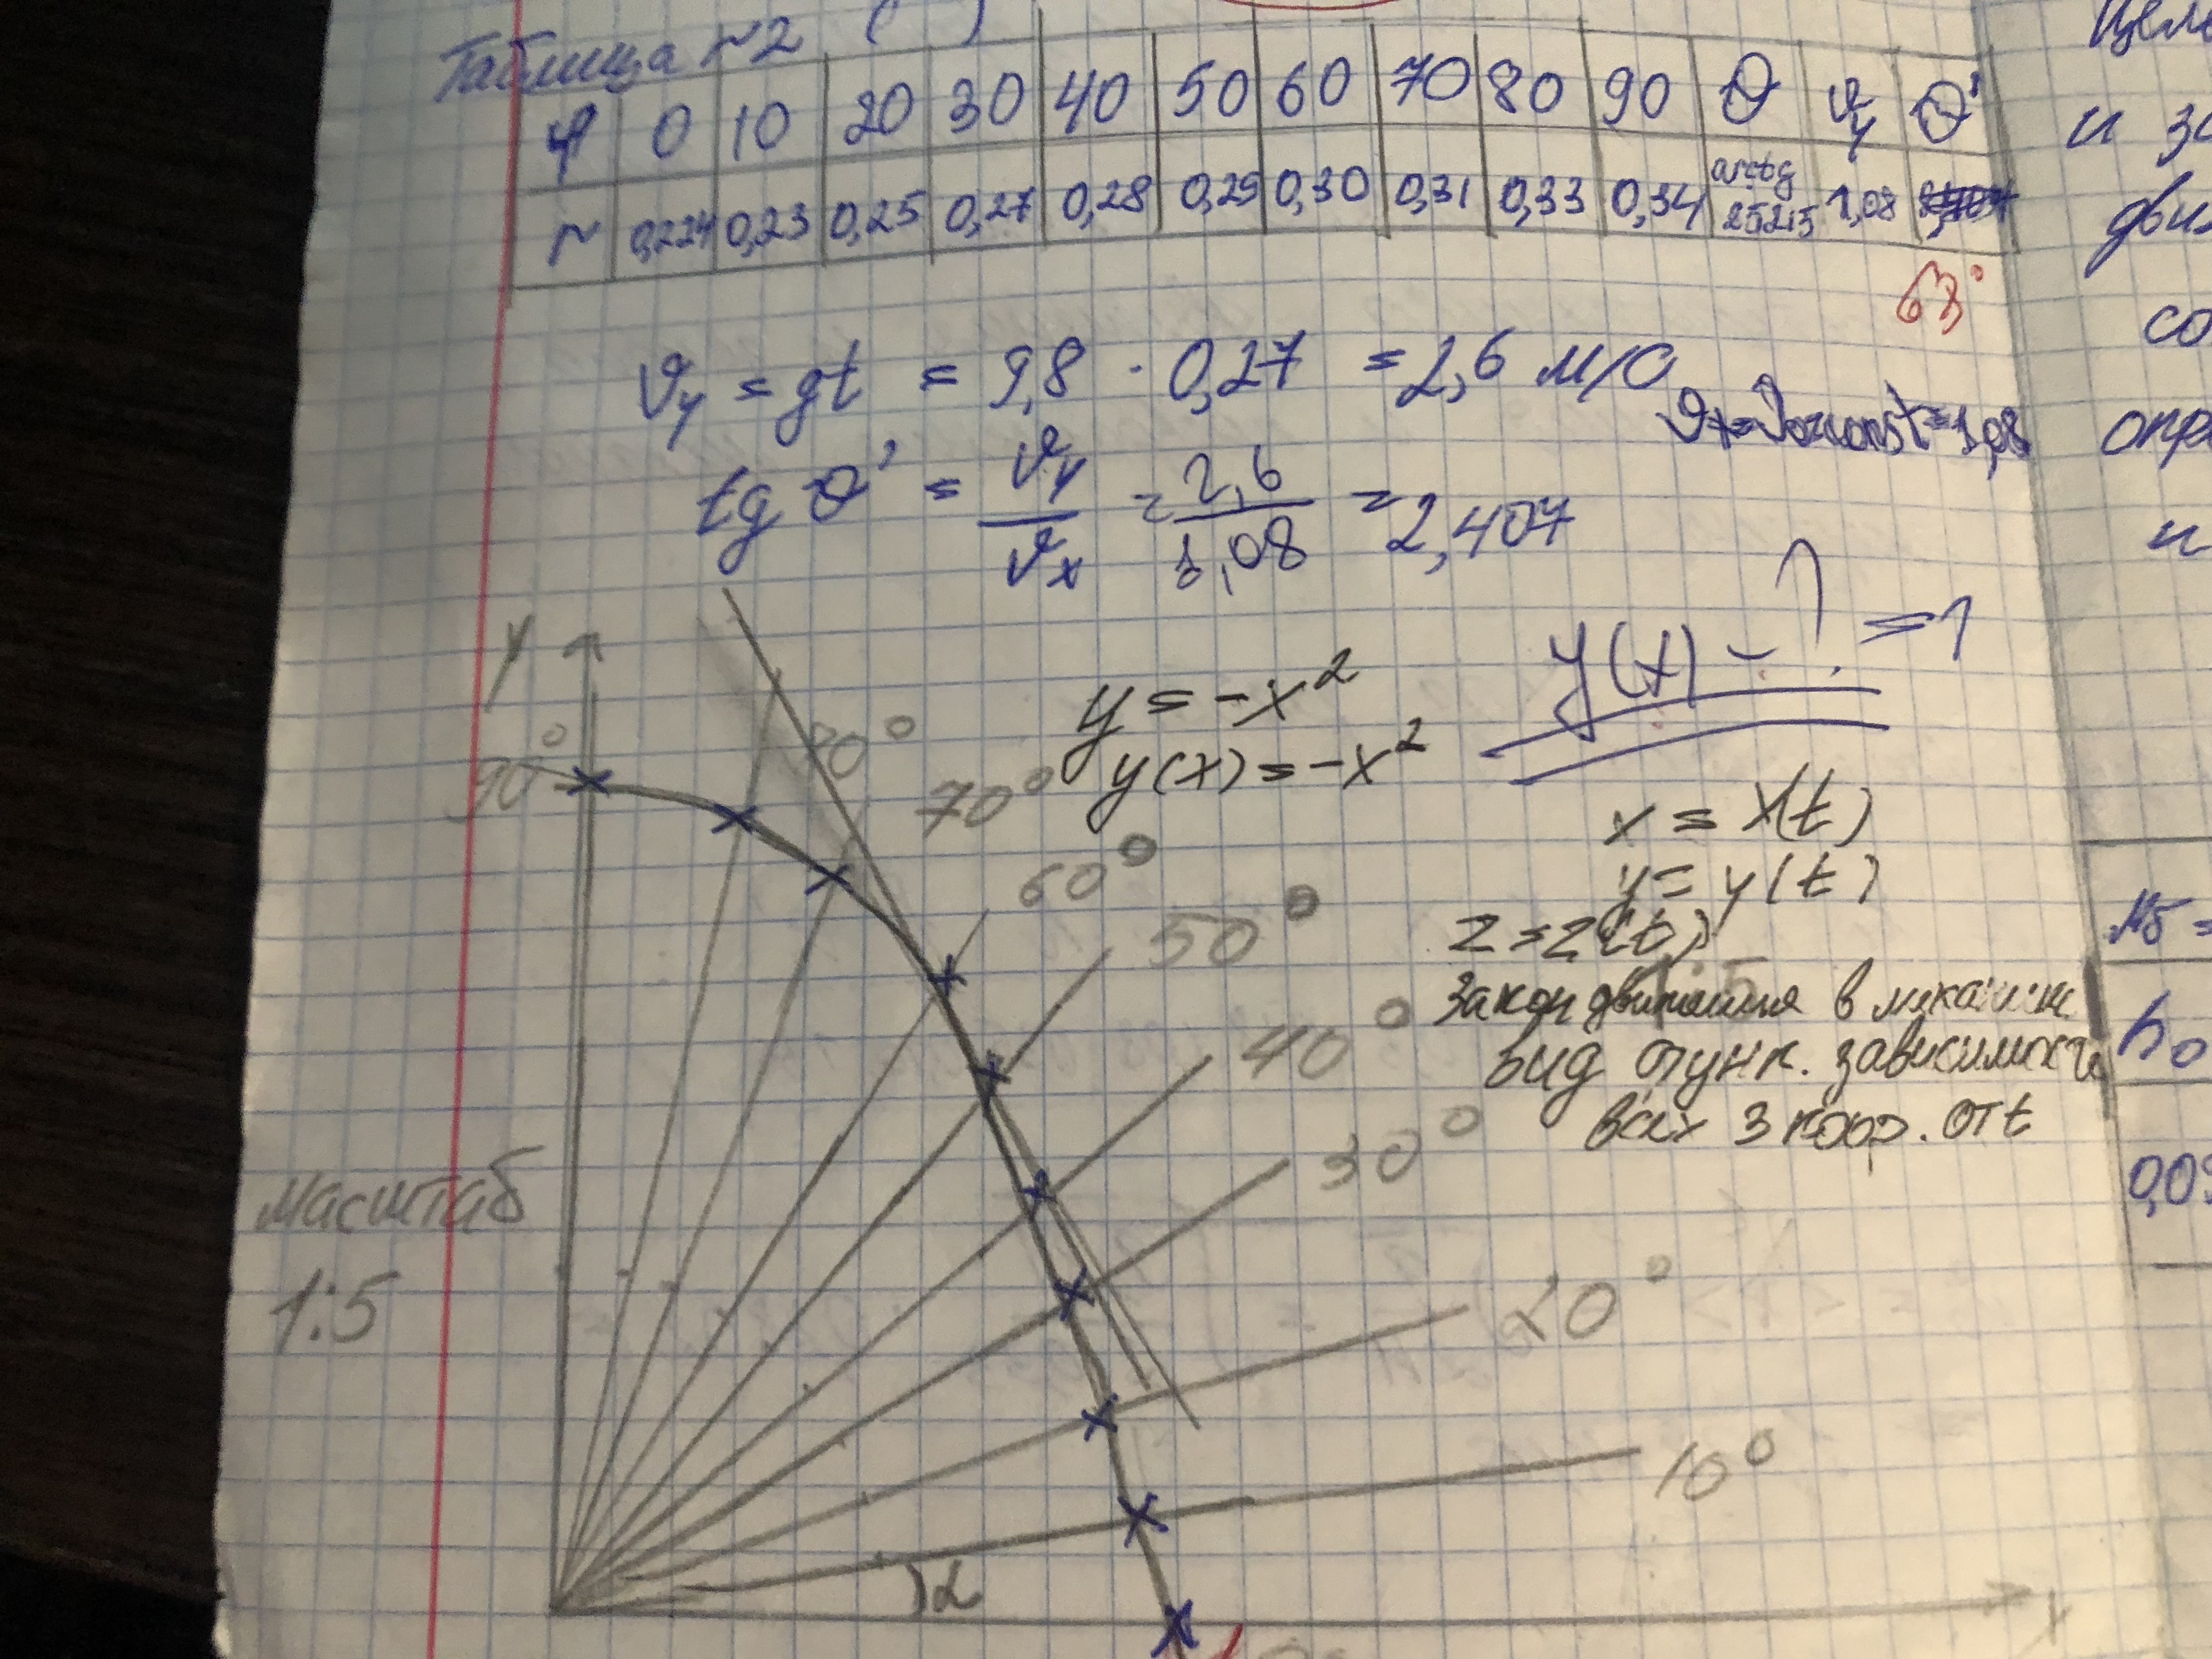 Таблица №2 ( )
φ 0 10 20 30 40 50 60 70 80 90 θ ϑy θ'
~ 0,224 0,23 0,25 0,27 0,28 0,29 0,30 0,31 0,33 0,34 arctg 2,5215 1,08
63°
ϑy = gt = 9,8 · 0,27 = 2,6 м/с
ϑx=ϑ0=const=1,08
tg θ' = ϑy/ϑx = 2,6/1,08 = 2,407
y(x) - ? =1
y = -x²
y(x) = -x²
x = x(t)
y = y(t)
z = z(t)
Закон движения в механике
вид функ. зависимости
всех 3 коор. от t
y
90°
80°
70°
60°
50°
40°
30°
20°
10°
α
x
масштаб
1:5
1:5
Цель
и
со
опре
и
h0